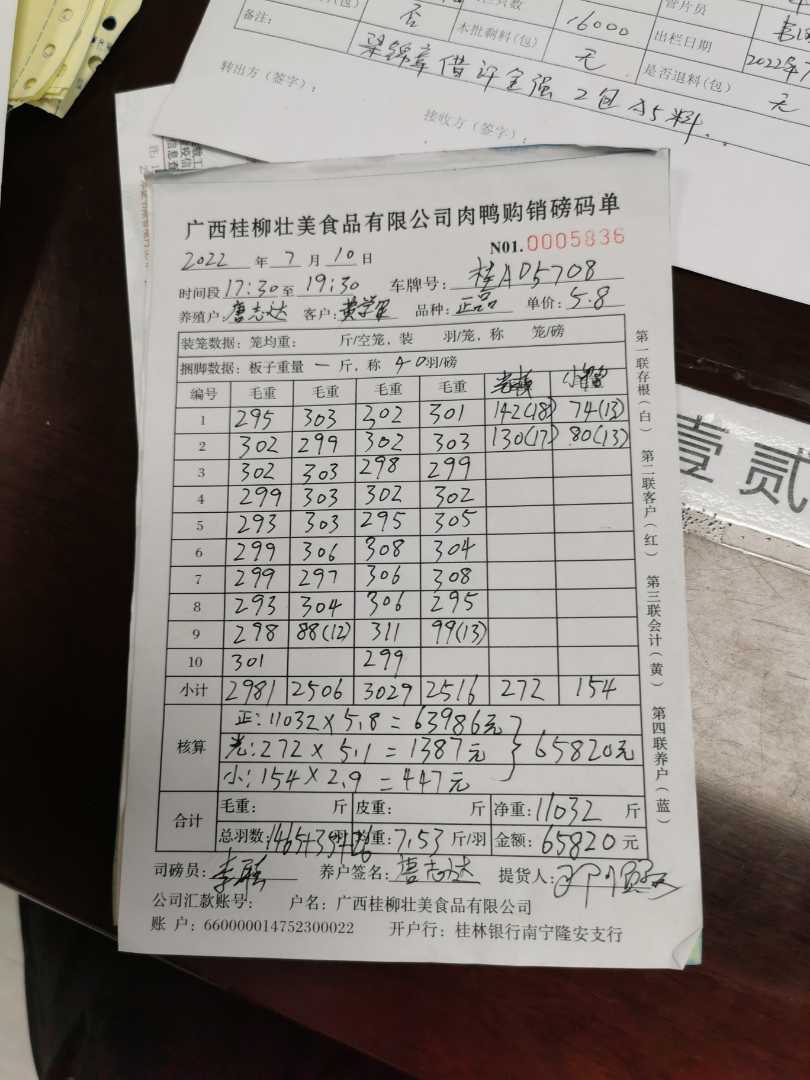 否
16000
管片员
备注:
本批剩料(包)
无
出栏日期
2022年7
借许金强 2包 A5料..
是否退料(包)
无
转出方(签字):
接收方(签字):
广西桂柳壮美食品有限公司肉鸭购销磅码单
N01.0005836
2022 年 7 月 10 日
时间段 17:30 至 19:30 车牌号: 桂AD5708
养殖户: 唐志达 客户: 品种: 正品 单价: 5.8
装笼数据: 笼均重: 斤/空笼, 装 羽/笼, 称 笼/磅
捆脚数据: 板子重量 一 斤, 称 40羽/磅
编号 毛重 毛重 毛重 毛重
1 295 303 302 301 142(18) 74(13)
2 302 299 302 303 130(17) 80(13)
3 302 303 298 299
4 299 303 302 302
5 293 303 295 305
6 299 306 308 304
7 299 297 306 308
8 293 304 306 295
9 298 88(12) 311 99(13)
10 301 299
小计 2981 2506 3029 2516 272 154
正:11032×5.8=63986元
核算 光:272×5.1=1387元 65820元
小:154×2.9=447元
合计 毛重: 斤 皮重: 斤 净重: 11032 斤
总羽数: 1465+35+26 均重: 7.53 斤/羽 金额: 65820元
司磅员: 养户签名: 唐志达 提货人:
公司汇款账号: 户名: 广西桂柳壮美食品有限公司
账 户: 660000014752300022 开户行: 桂林银行南宁隆安支行
第一联存根(白) 第二联客户(红) 第三联会计(黄) 第四联养户(蓝)
壹贰